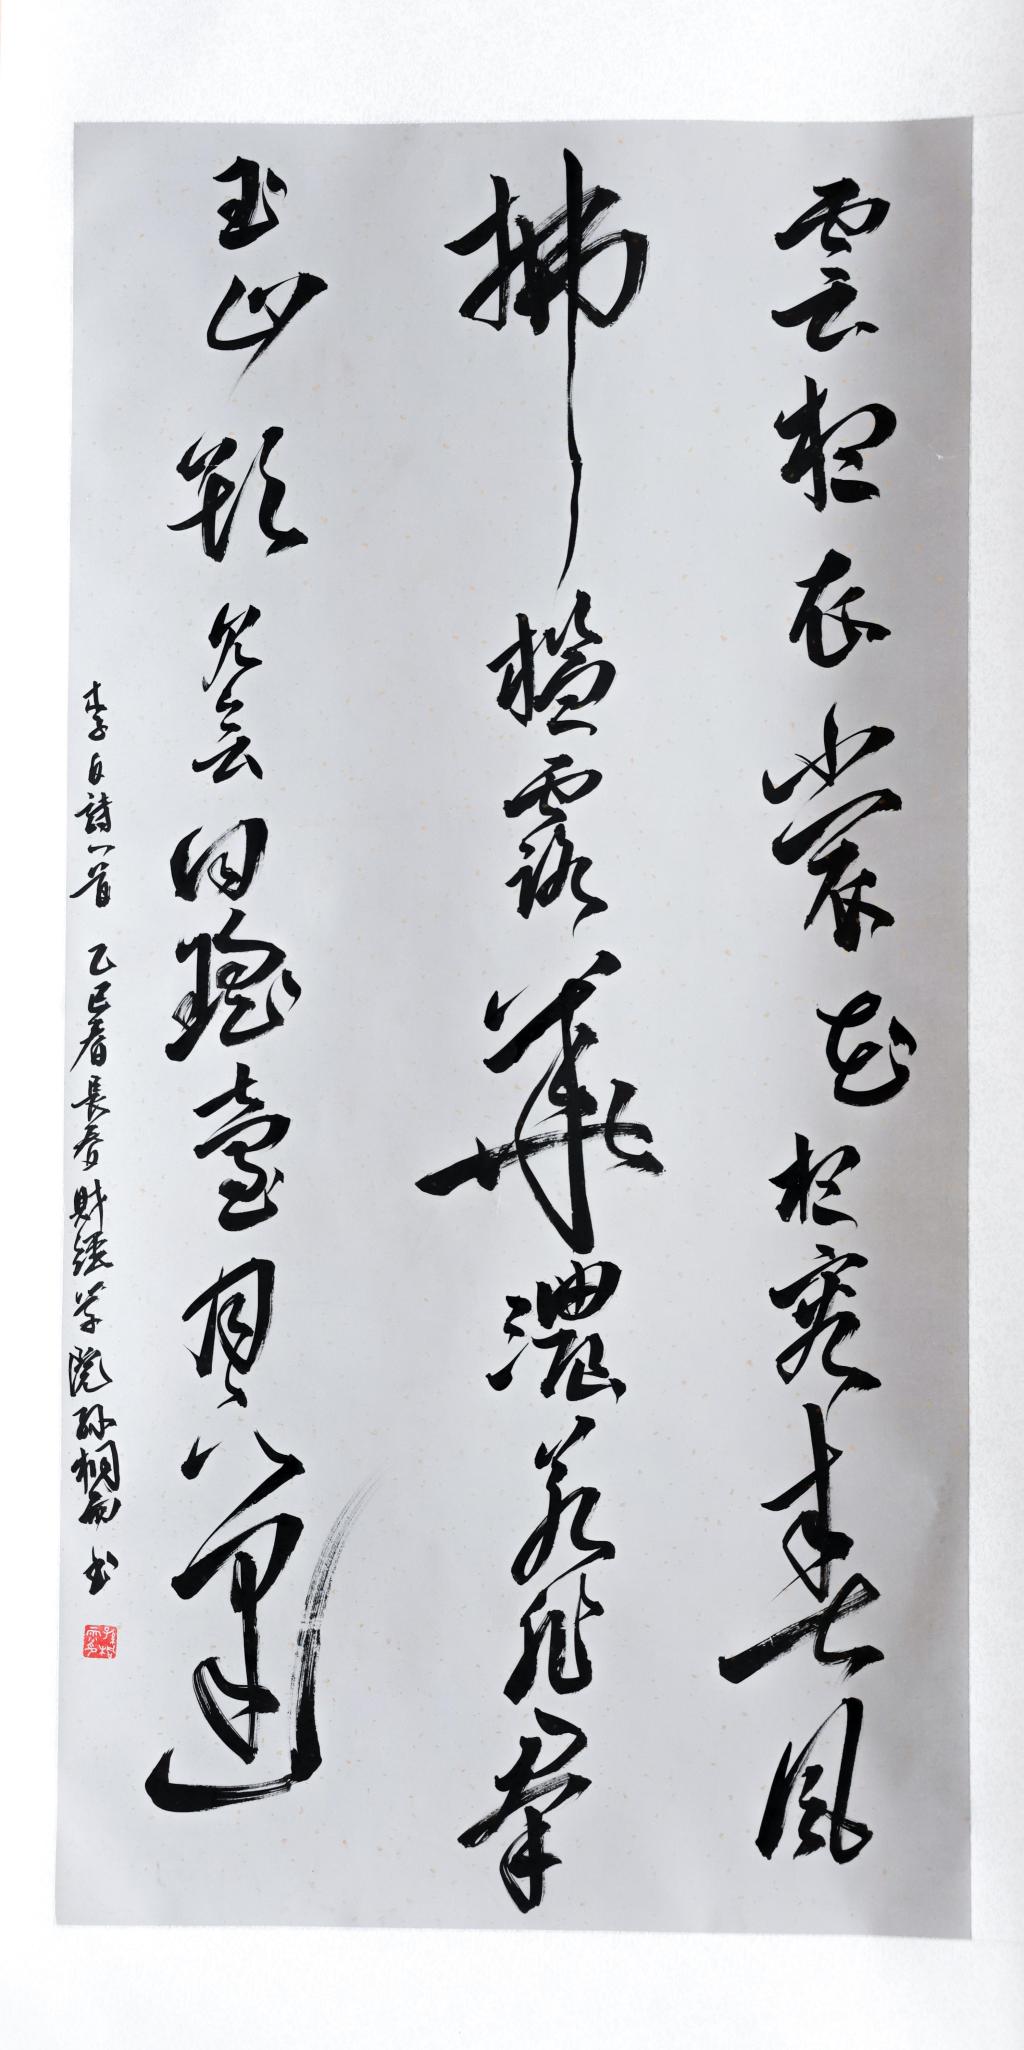 雲想衣裳花想容春風
拂檻露華濃若非群
玉山頭見會向瑤臺月下逢
李白詩一首 乙巳春長春財經學院孫桐雨書